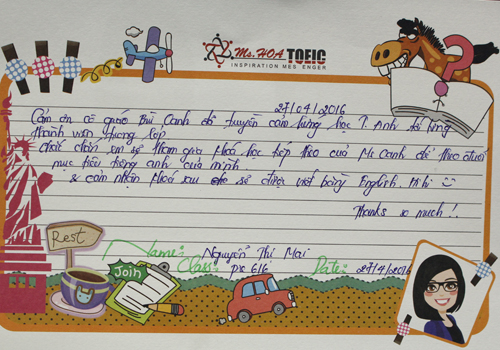 Ms. HOA TOEIC
INSPIRATION MESSENGER
27/04/2016
Cảm ơn cô giáo Thu Canh đã truyền cảm hứng học T. Anh tới từng
thành viên trong lớp
chắc chắn em sẽ tham gia khoá học tiếp theo của Ms Canh để theo đuổi
mục tiêu tiếng anh của mình
& cảm nhận khoá sau sẽ được viết bằng English. Hihi
Thanks so much!.
Rest
Join
Name: Nguyễn Thị Mai
Class: Pre 616
Date: 27/4/2016